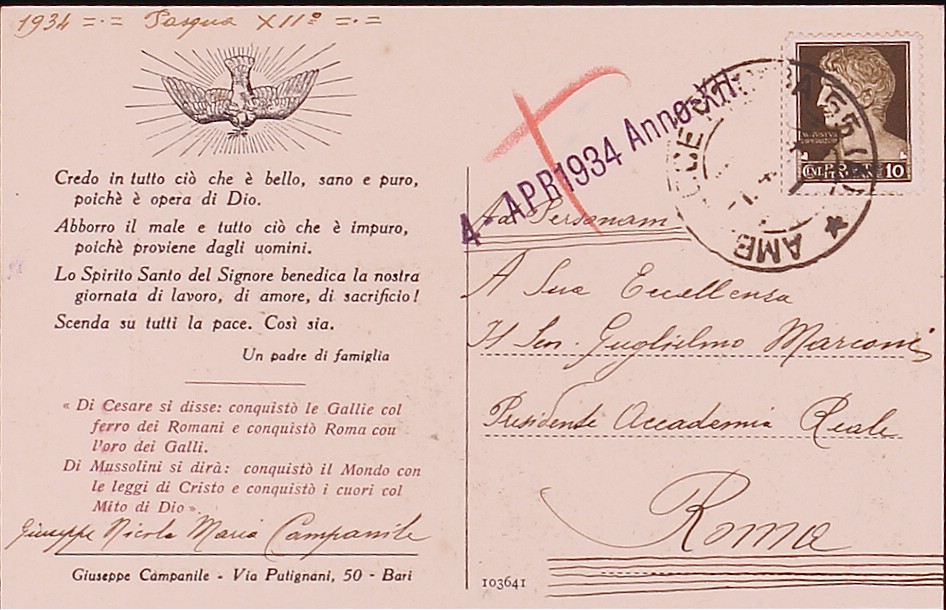 1934 =·= Pasqua XII° =·=
Credo in tutto ciò che è bello, sano e puro,
poichè è opera di Dio.
Abborro il male e tutto ciò che è impuro,
poichè proviene dagli uomini.
Lo Spirito Santo del Signore benedica la nostra
giornata di lavoro, di amore, di sacrificio!
Scenda su tutti la pace. Così sia.
Un padre di famiglia
« Di Cesare si disse: conquistò le Gallie col
ferro dei Romani e conquistò Roma cou
l'oro dei Galli.
Di Mussolini si dirà: conquistò il Mondo con
le leggi di Cristo e conquistò i cuori col
Mito di Dio ».
Giuseppe Nicola Maria Campanile
Giuseppe Campanile - Via Putignani, 50 - Bari
4 - APR 1934 Anno XII
AMB
CENT. 10
Ad Personam
A Sua Eccellenza
Il Sen. Guglielmo Marconi
Presidente Accademia Reale
Roma
103641